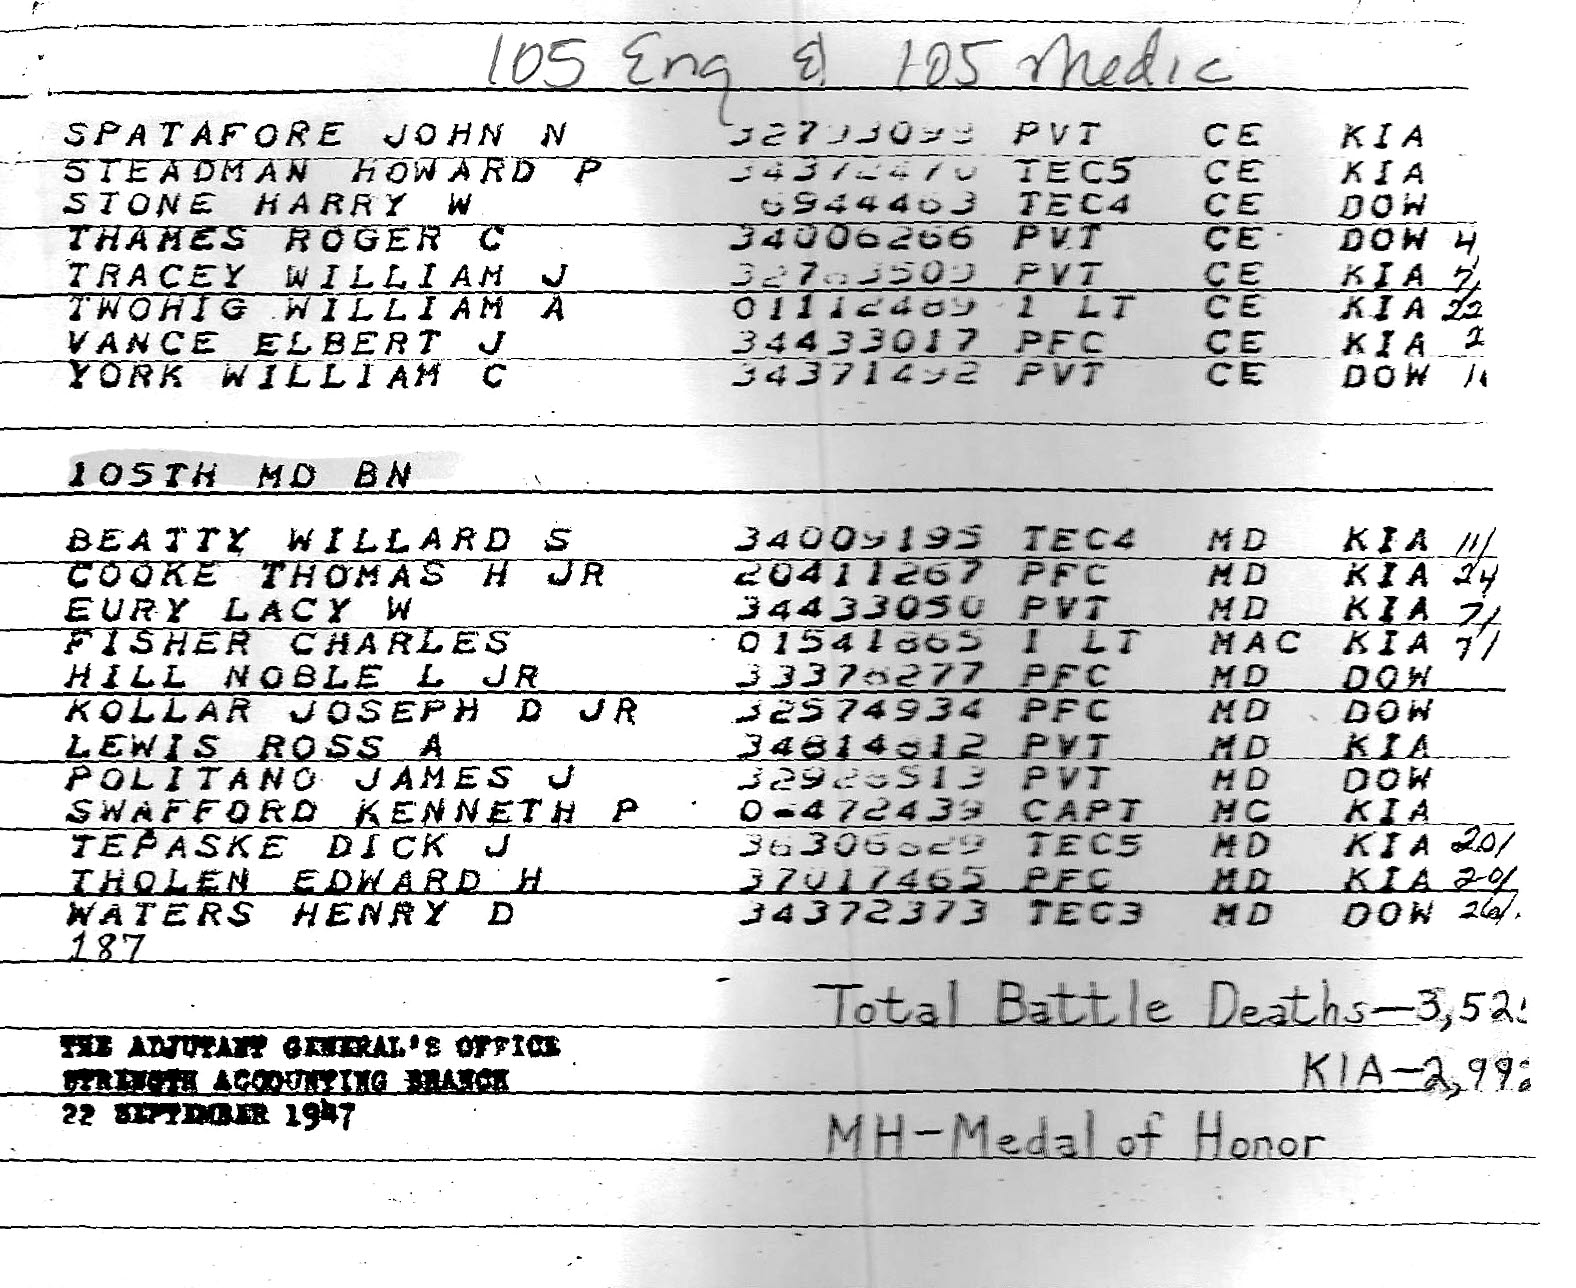 105 Eng & 105 Medic
SPATAFORE JOHN N PVT CE KIA
STEADMAN HOWARD P TEC5 CE KIA
STONE HARRY W TEC4 CE DOW
THAMES ROGER C 34006266 PVT CE DOW 4
TRACEY WILLIAM J PVT CE KIA
TWOHIG WILLIAM A 1 LT CE KIA 22
VANCE ELBERT J 34433017 PFC CE KIA 2
YORK WILLIAM C 34371492 PVT CE DOW
105TH MD BN
BEATTY WILLARD S 34009195 TEC4 MD KIA 11/
COOKE THOMAS H JR 20411267 PFC MD KIA 24
EURY LACY W 34433050 PVT MD KIA 7/
FISHER CHARLES 1 LT MAC KIA 7/
HILL NOBLE L JR 33378277 PFC MD DOW
KOLLAR JOSEPH D JR 32574934 PFC MD DOW
LEWIS ROSS A PVT MD KIA
POLITANO JAMES J PVT MD DOW
SWAFFORD KENNETH P 0-472439 CAPT MC KIA
TEPASKE DICK J TEC5 MD KIA 20/
THOLEN EDWARD H 37017465 PFC MD KIA 20/
WATERS HENRY D 34372373 TEC3 MD DOW 26/
187
Total Battle Deaths-3,52
THE ADJUTANT GENERAL'S OFFICE
KIA-2,99
STRENGTH ACCOUNTING BRANCH
22 SEPTEMBER 1947
MH-Medal of Honor